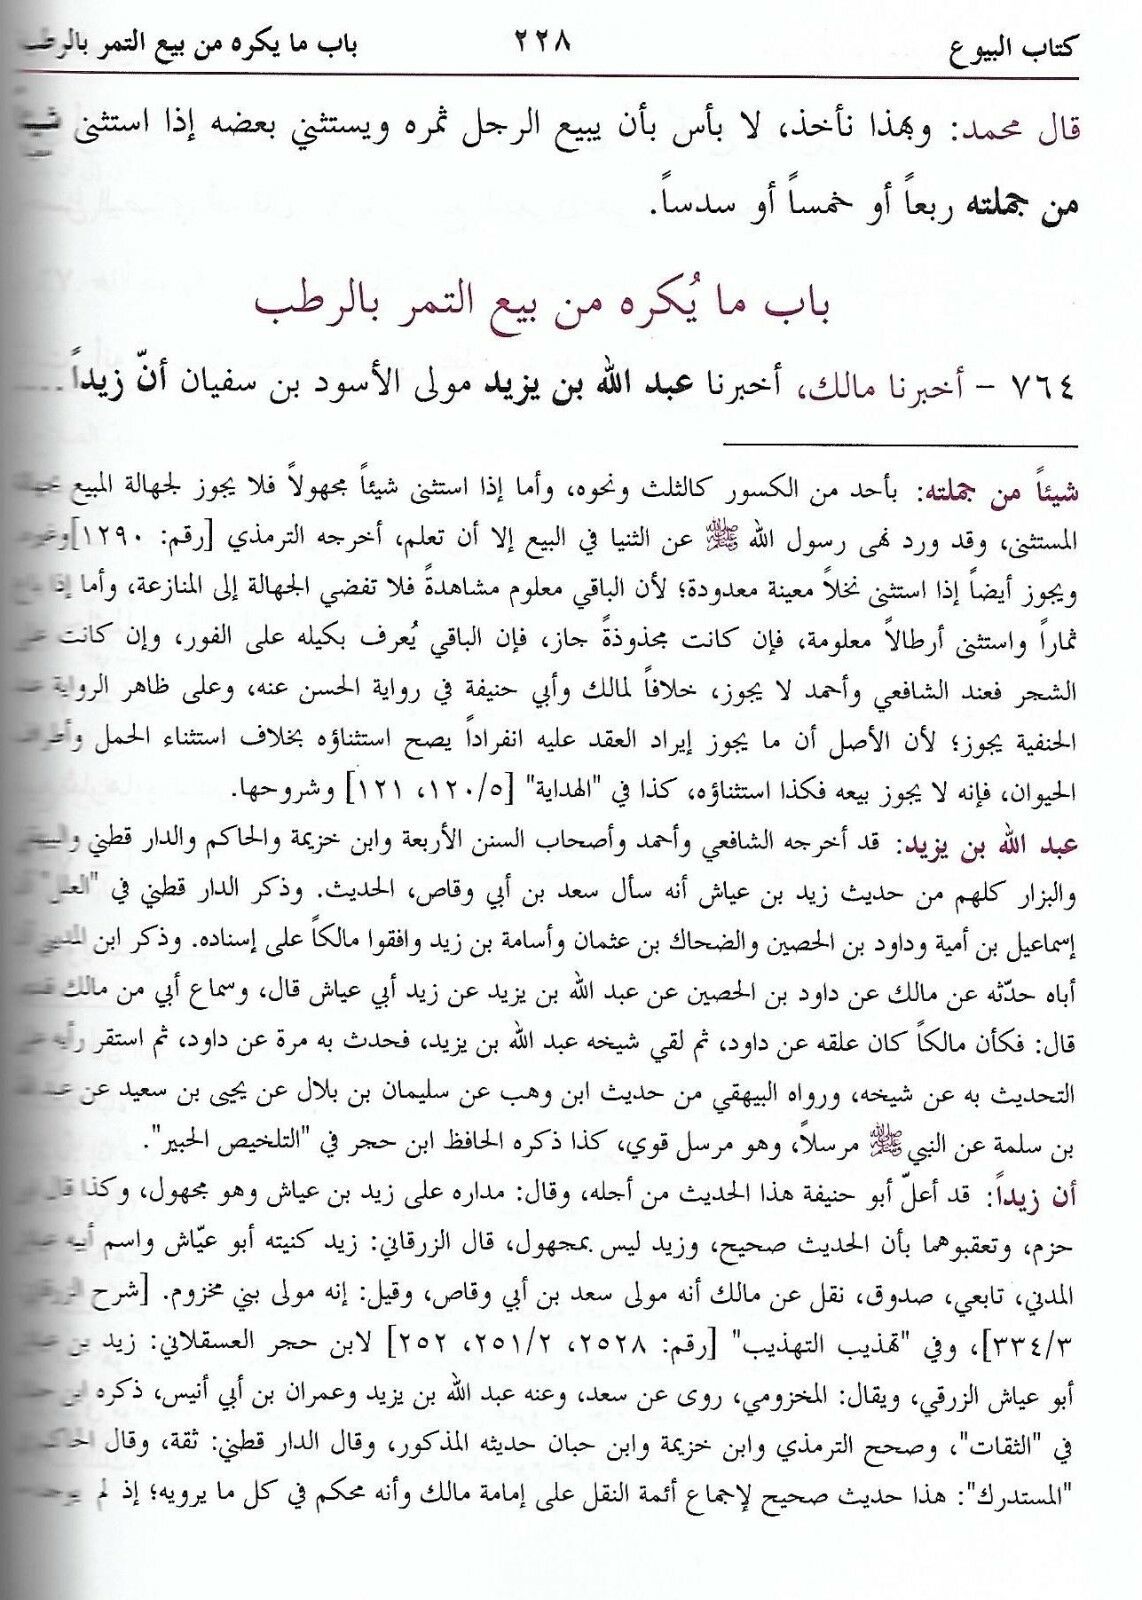 كتاب البيوع ٢٢٨ باب ما يكره من بيع التمر بالرطب
قال محمد: وبهذا نأخذ، لا بأس بأن يبيع الرجل ثمره ويستثني بعضه إذا استثنى شيئا
من جملته ربعاً أو خمساً أو سدساً.
باب ما يُكره من بيع التمر بالرطب
٧٦٤ - أخبرنا مالك، أخبرنا عبد الله بن يزيد مولى الأسود بن سفيان أنّ زيداً ....
شيئاً من جملته: بأحد من الكسور كالثلث ونحوه، وأما إذا استثنى شيئاً مجهولاً فلا يجوز لجهالة المبيع
المستثنى، وقد ورد نهى رسول الله ﷺ عن الثنيا في البيع إلا أن تعلم، أخرجه الترمذي [رقم: ١٢٩٠]
ويجوز أيضاً إذا استثنى نخلاً معينة معدودة؛ لأن الباقي معلوم مشاهدةً فلا تفضي الجهالة إلى المنازعة، وأما إذا
ثماراً واستثنى أرطالاً معلومة، فإن كانت مجذوذةً جاز، فإن الباقي يُعرف بكيله على الفور، وإن كانت على
الشجر فعند الشافعي وأحمد لا يجوز، خلافاً لمالك وأبي حنيفة في رواية الحسن عنه، وعلى ظاهر الرواية
الحنفية يجوز؛ لأن الأصل أن ما يجوز إيراد العقد عليه انفراداً يصح استثناؤه بخلاف استثناء الحمل وأطراف
الحيوان، فإنه لا يجوز بيعه فكذا استثناؤه، كذا في "الهداية" [١٢٠/٥، ١٢١] وشروحها.
عبد الله بن يزيد: قد أخرجه الشافعي وأحمد وأصحاب السنن الأربعة وابن خزيمة والحاكم والدار قطني والبيهقي
والبزار كلهم من حديث زيد بن عياش أنه سأل سعد بن أبي وقاص، الحديث. وذكر الدار قطني في "العلل"
إسماعيل بن أمية وداود بن الحصين والضحاك بن عثمان وأسامة بن زيد وافقوا مالكاً على إسناده. وذكر ابن المديني
أباه حدّثه عن مالك عن داود بن الحصين عن عبد الله بن يزيد عن زيد أبي عياش قال، وسماع أبي من مالك
قال: فكأن مالكاً كان علقه عن داود، ثم لقي شيخه عبد الله بن يزيد، فحدث به مرة عن داود، ثم استقر رأيه
التحديث به عن شيخه، ورواه البيهقي من حديث ابن وهب عن سليمان بن بلال عن يحيى بن سعيد عن
بن سلمة عن النبي ﷺ مرسلاً، وهو مرسل قوي، كذا ذكره الحافظ ابن حجر في "التلخيص الحبير".
أن زيداً: قد أعلّ أبو حنيفة هذا الحديث من أجله، وقال: مداره على زيد بن عياش وهو مجهول، وكذا قال
حزم، وتعقبوهما بأن الحديث صحيح، وزيد ليس بمجهول، قال الزرقاني: زيد كنيته أبو عيّاش واسم أبيه
المدني، تابعي، صدوق، نقل عن مالك أنه مولى سعد بن أبي وقاص، وقيل: إنه مولى بني مخزوم. [شرح الزرقاني
٣٣٤/٣]، وفي "تهذيب التهذيب" [رقم: ٢٥٢٨، ٢٥١/٢، ٢٥٢] لابن حجر العسقلاني: زيد بن
أبو عياش الزرقي، ويقال: المخزومي، روى عن سعد، وعنه عبد الله بن يزيد وعمران بن أبي أنيس، ذكره ابن
في "الثقات"، وصحح الترمذي وابن خزيمة وابن حبان حديثه المذكور، وقال الدار قطني: ثقة، وقال الحاكم
"المستدرك": هذا حديث صحيح لإجماع أئمة النقل على إمامة مالك وأنه محكم في كل ما يرويه؛ إذ لم